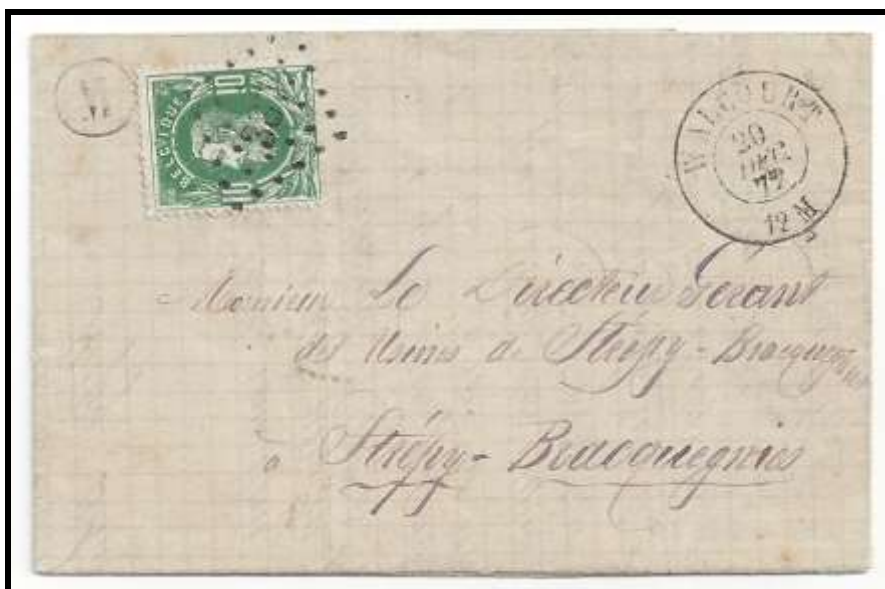 10
BELGIQUE
10
WALCOURT
20
DEC
77
12 M
Monsieur Le Directeur Gerant
des Usines de Strépy-Bracquegnies
à Strépy-Bracquegnies